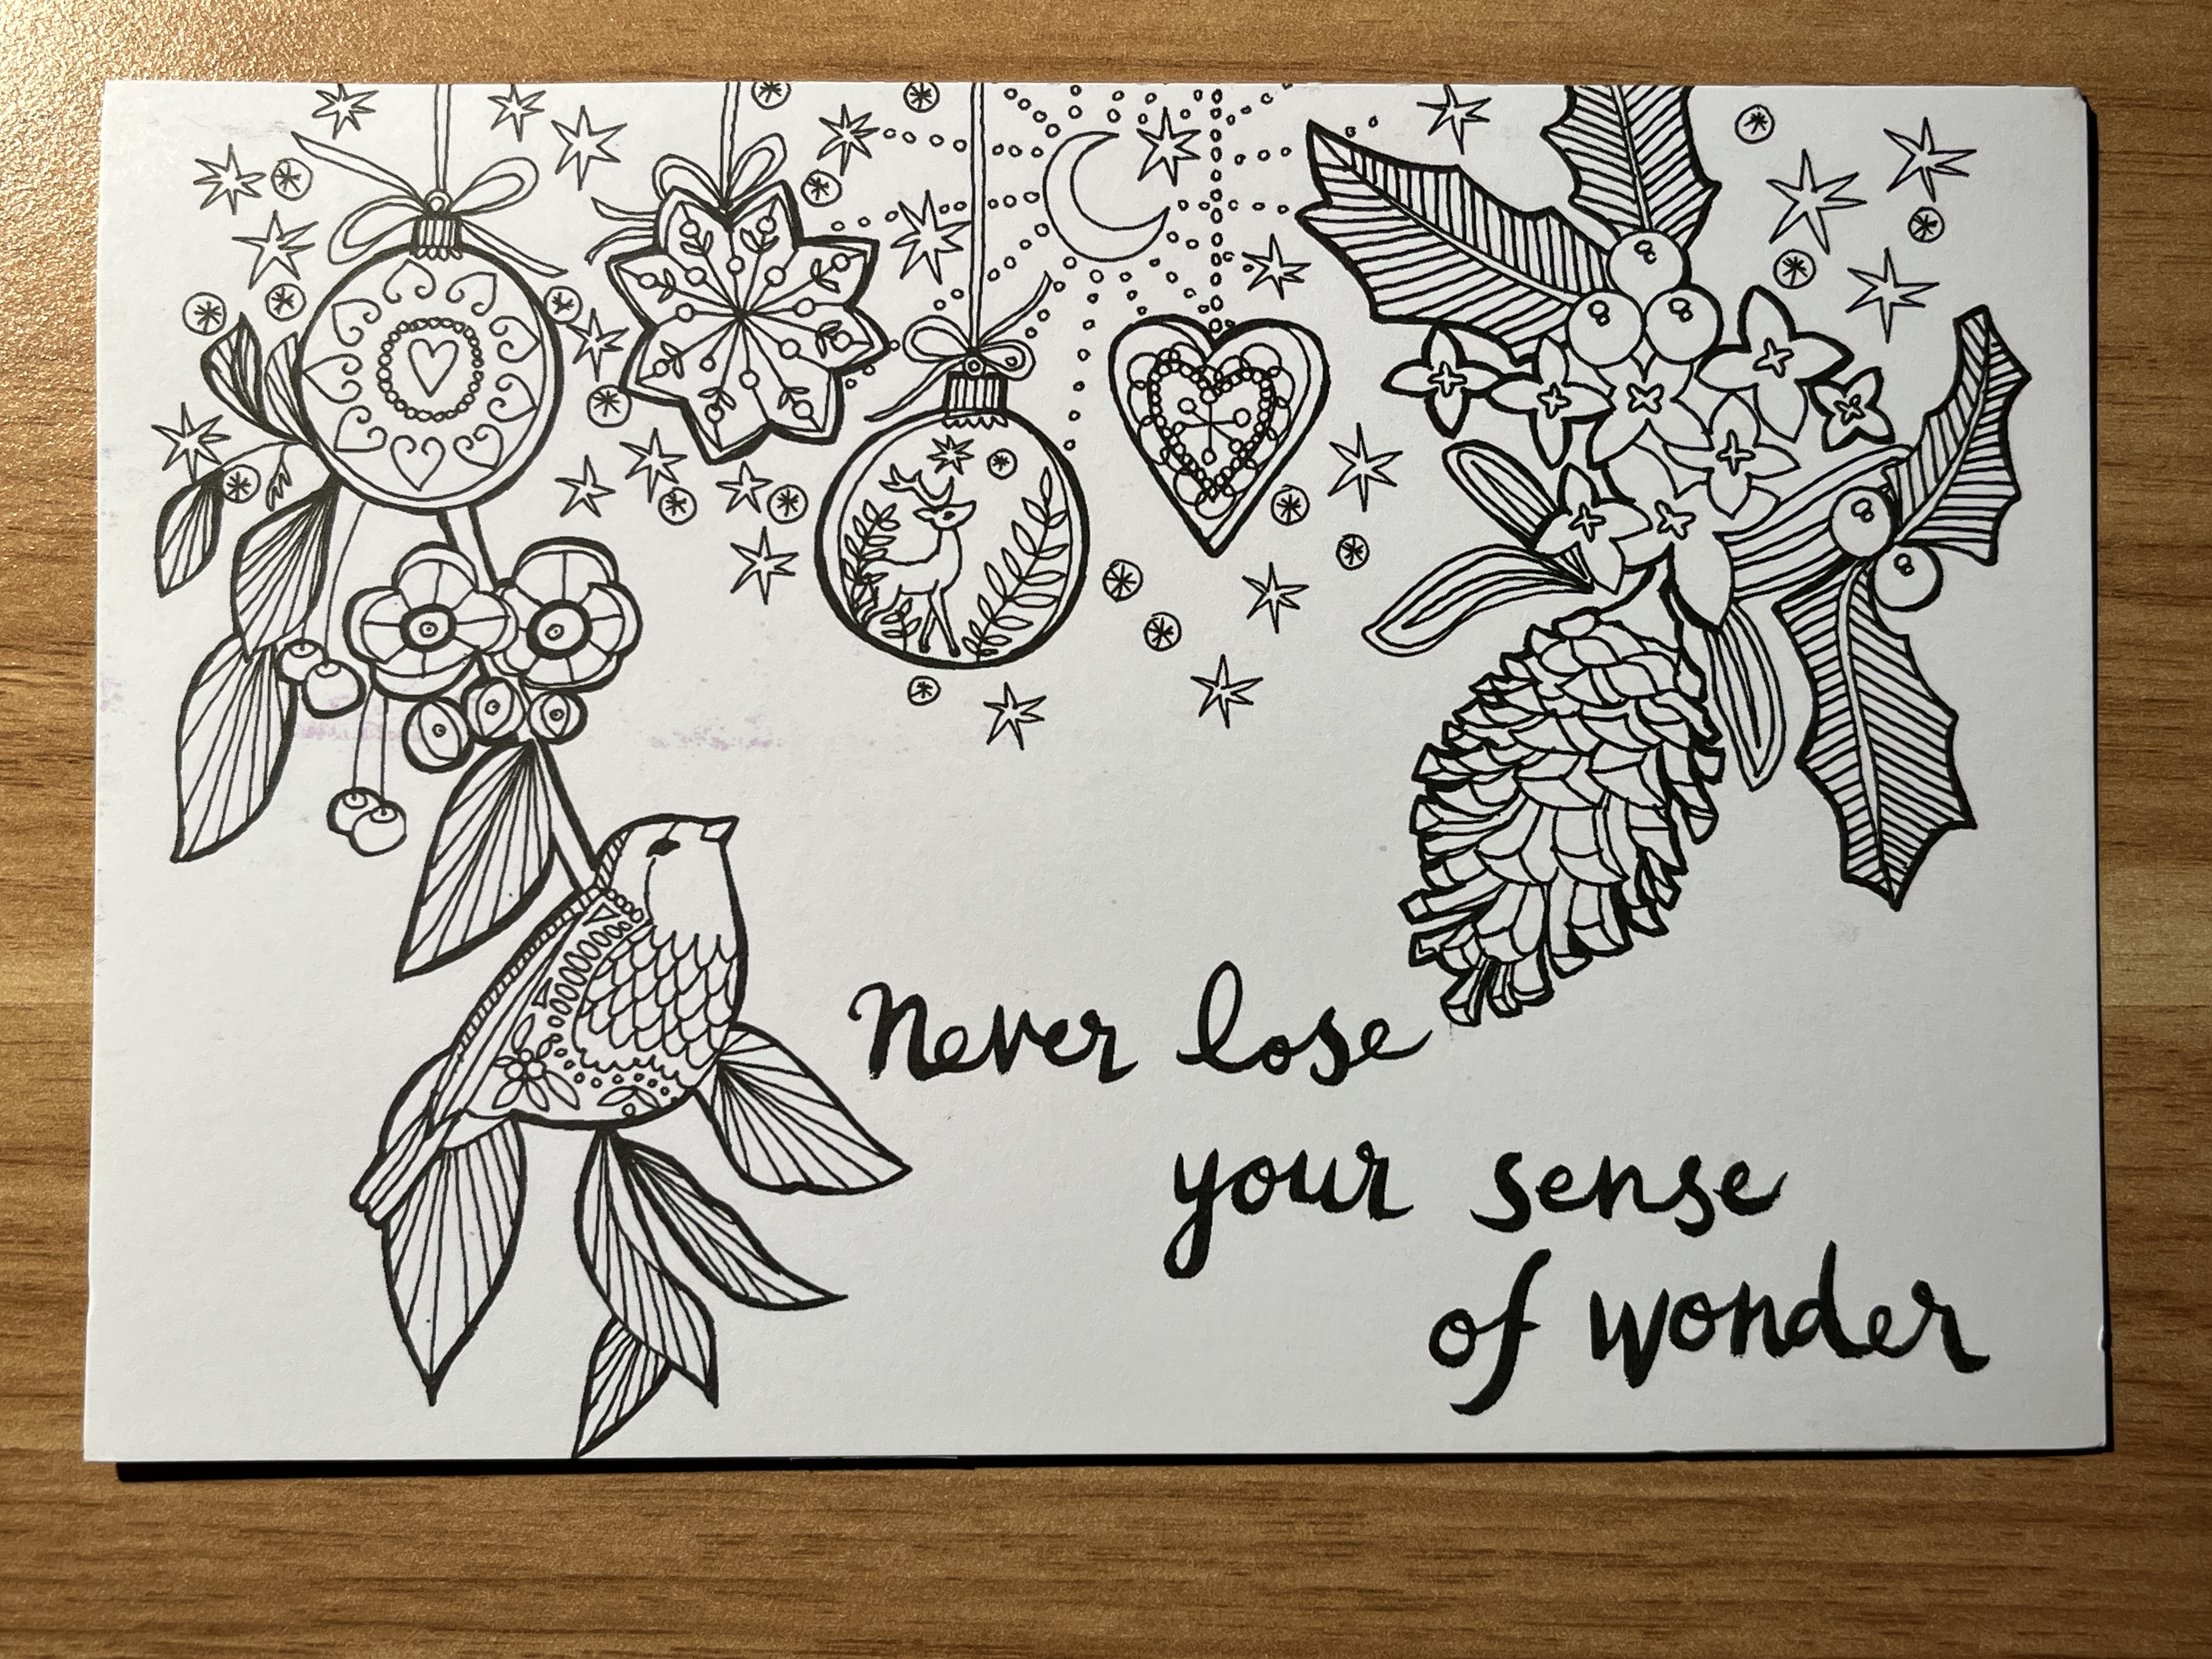 Never lose
your sense
of wonder